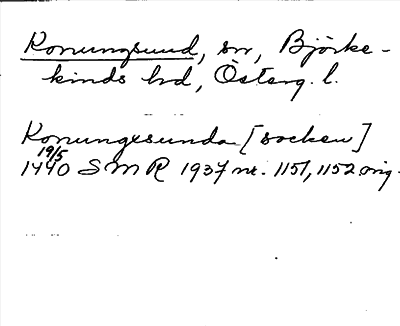 Konungsund, sn, Björke-
kinds hd, Österg. l.
Konungesunda [socken]
19/5
1440 SMR 1937 nr. 1151, 1152 orig.